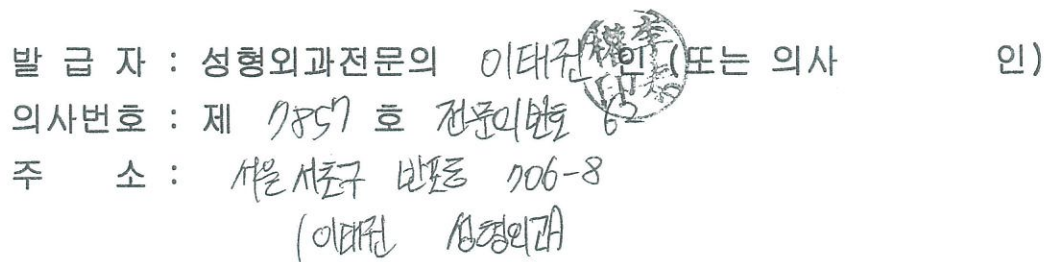 발 급 자 : 성형외과전문의 이태권 인 (또는 의사 인)
의사번호 : 제 7857 호 전문의번호 62
주 소 : 서울 서초구 반포동 706-8
(이태권 성형외과)